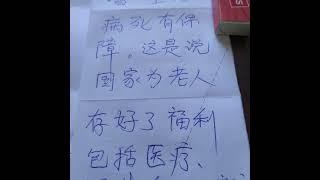 病死有保
障。这是说
国家为老人
存好了福利
包括医疗、